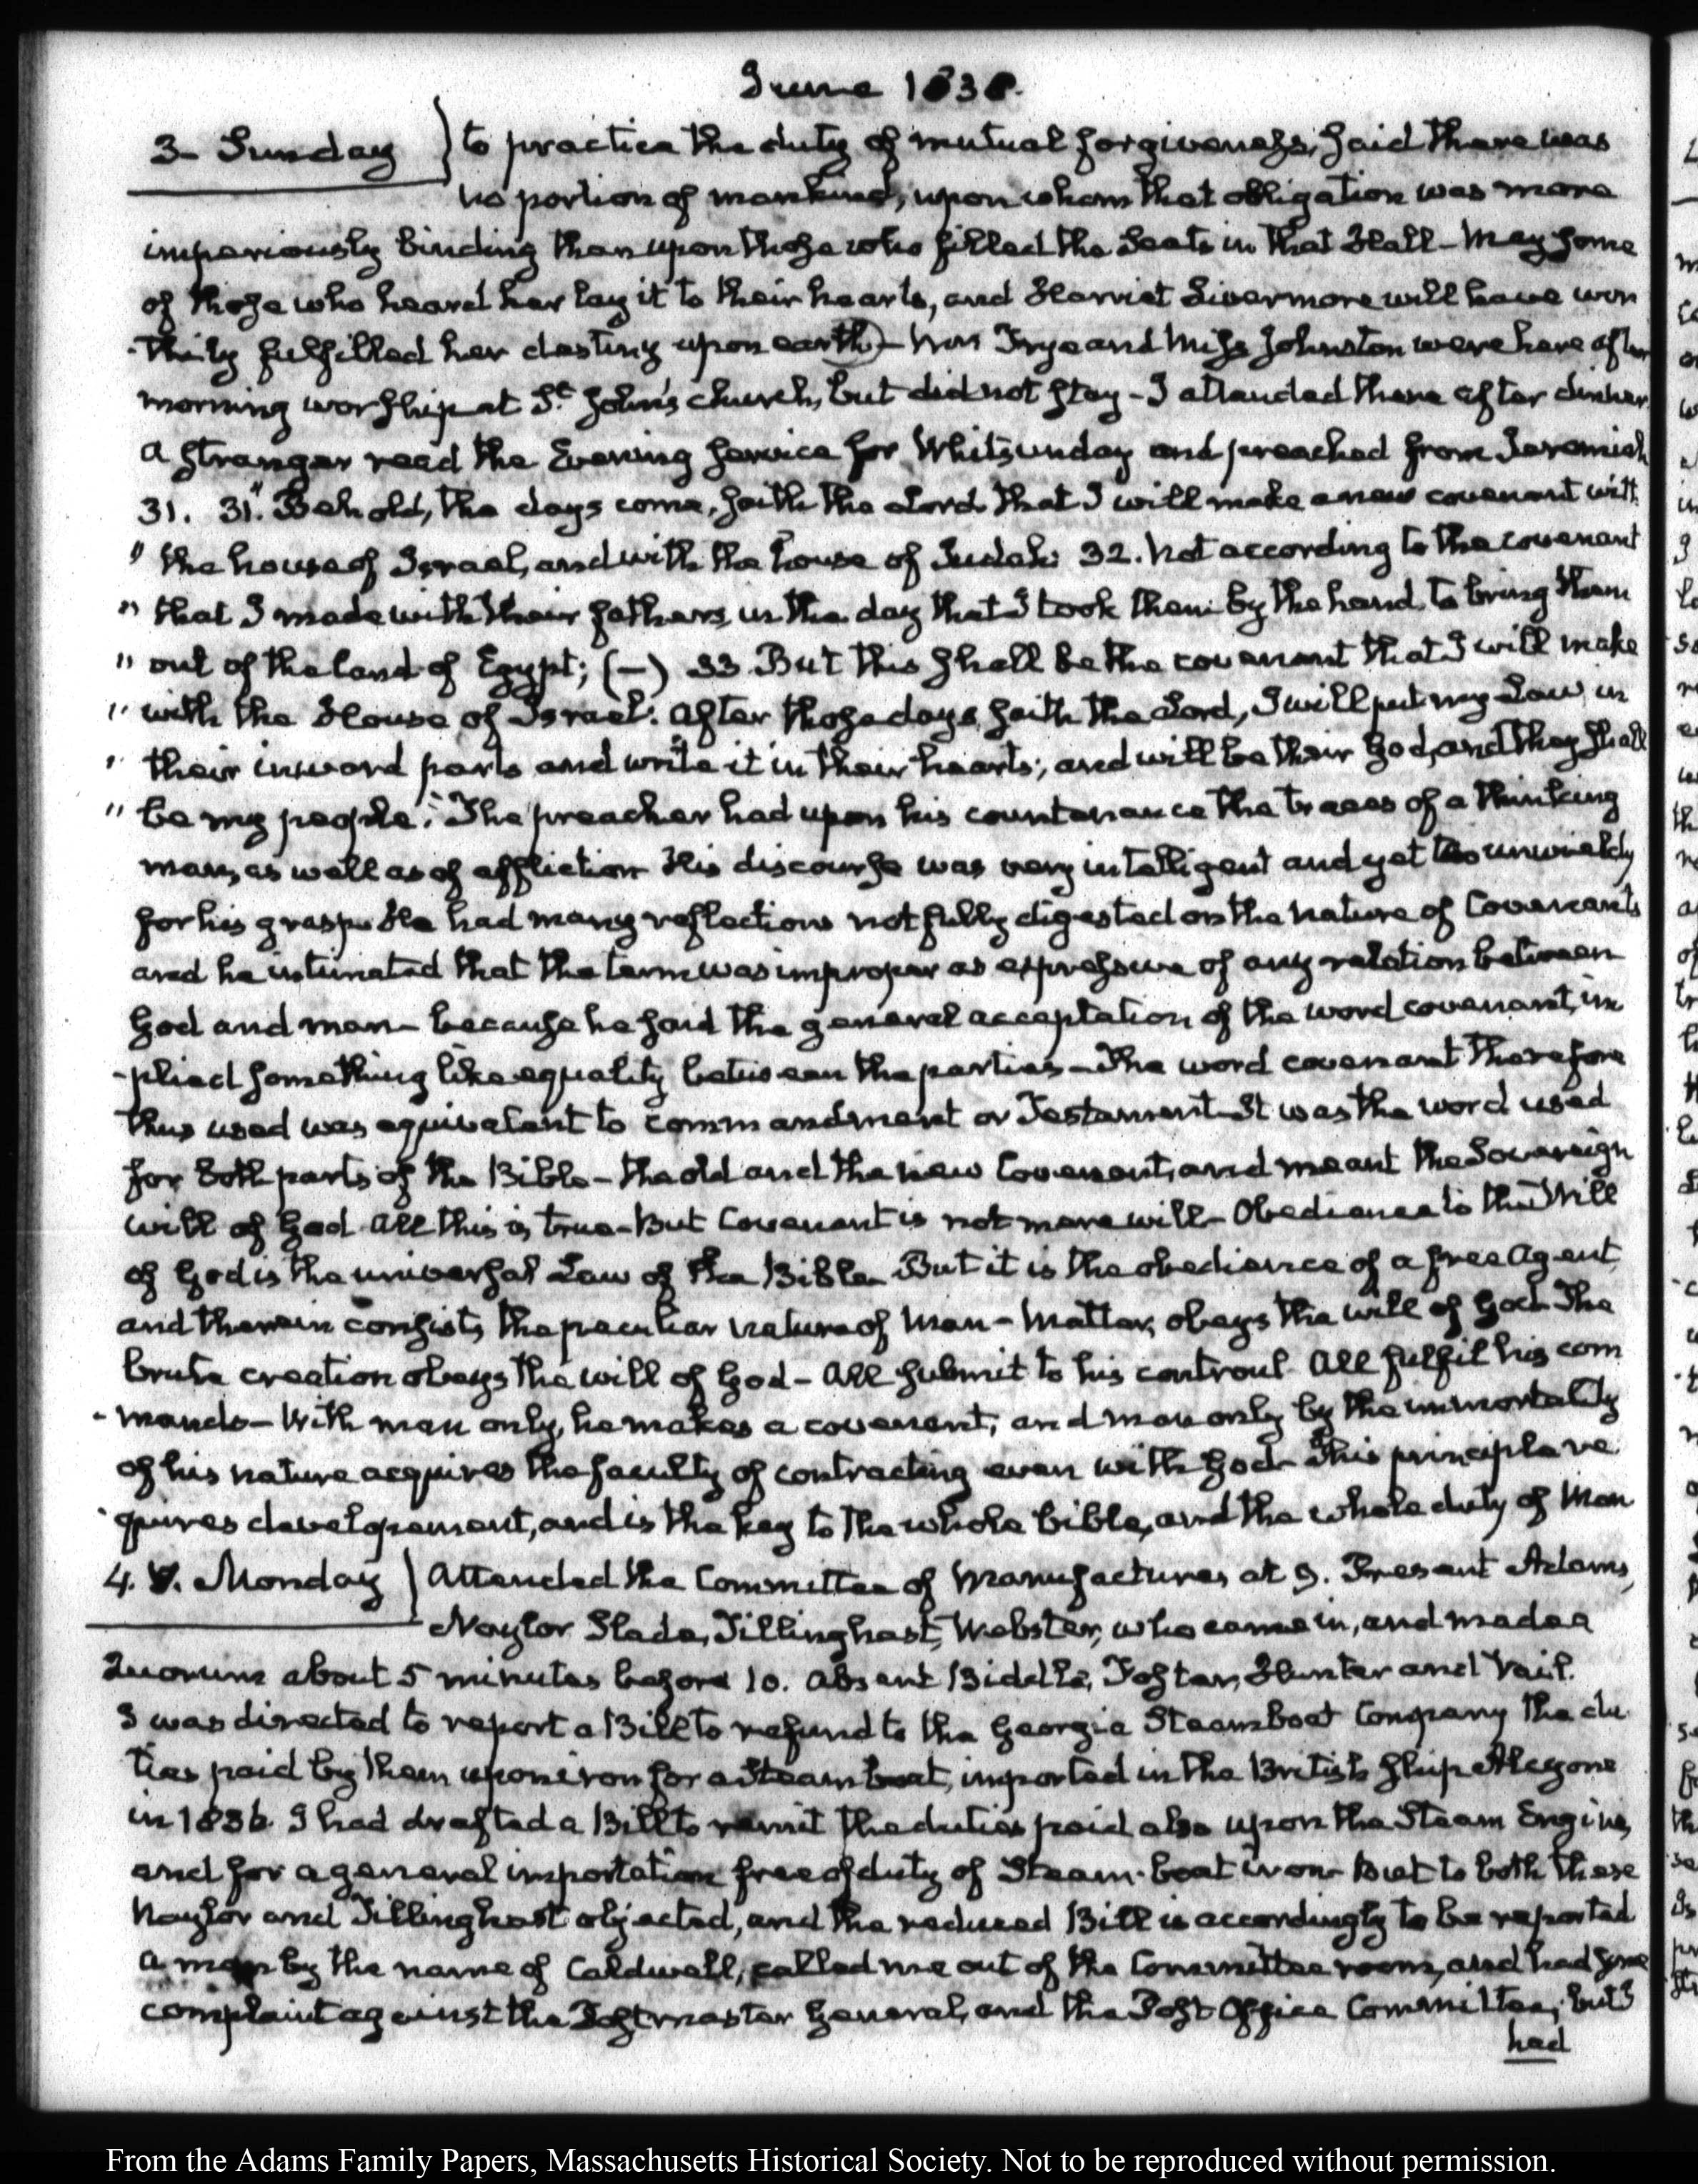 June 1838.
3- Sunday } to practice the duty of mutual forgiveness, said there was
no portion of mankind, upon whom that obligation was more
imperiously binding than upon those who filled the Seats in that Hall - May some
of those who heard her lay it to their hearts, and Harriet Livermore will have wor
-thily fulfilled her destiny upon earth - Mrs Frye and Miss Johnston were here after
morning worship at St. John's church, but did not stay - I attended there after dinner
a stranger read the Evening service for Whitsunday and preached from Jeremiah
31. 31. "Behold, the days come, saith the Lord that I will make a new covenant with
" the house of Israel, and with the house of Judah: 32. Not according to the covenant
" that I made with their fathers, in the day that I took them by the hand to bring them
" out of the land of Egypt; (—) 33 But this shall be the covenant that I will make
" with the House of Israel: After those days, saith the Lord, I will put my Law in
" their inward parts and write it in their hearts; and will be their God, and they shall
" be my people." The preacher had upon his countenance the traces of a thinking
man, as well as of affliction His discourse was very intelligent and yet too unwieldy
for his grasp. He had many reflections not fully digested on the nature of Covenants
and he intimated that the term was improper as expressive of any relation between
God and man - because he said the general acceptation of the word covenant, im
-plied something like equality between the parties - The word covenant therefore
thus used was equivalent to commandment or Testament It was the word used
for both parts of the Bible - the old and the new Covenant, and meant the Sovereign
will of God All this is true - But Covenant is not mere will - Obedience to the Will
of God is the universal Law of the Bible But it is the obedience of a free agent
and therein consists, the peculiar nature of Man - Matter, obeys the will of God. The
brute creation obeys the will of God - All submit to his controul All fulfil his com
- mands - With man only, he makes a covenant, and man only by the immortality
of his nature acquires the faculty of contracting even with God This principle re
-quires developement, and is the key to the whole bible, and the whole duty of Man
4. V. Monday } Attended the Committee of Manufactures, at 9. Present Adams,
Naylor Slade, Tillinghast, Webster, who came in, and made a
Quorum about 5 minutes before 10. Absent Biddle, Foster, Hunter and Vail.
I was directed to report a Bill to refund to the Georgia Steamboat Company the du
ties paid by them upon iron for a Steam boat, imported in the British ship Alcyone
in 1836. I had drafted a Bill to remit the duties paid also upon the Steam Engine,
and for a general importation free of duty of Steam-boat iron But to both these
Naylor and Tillinghast objected, and the reduced Bill is accordingly to be reported
a man by the name of Caldwell, called me out of the Committee room, and had some
complaint against the Postmaster General, and the Post Office Committee, but I
had
From the Adams Family Papers, Massachusetts Historical Society. Not to be reproduced without permission.